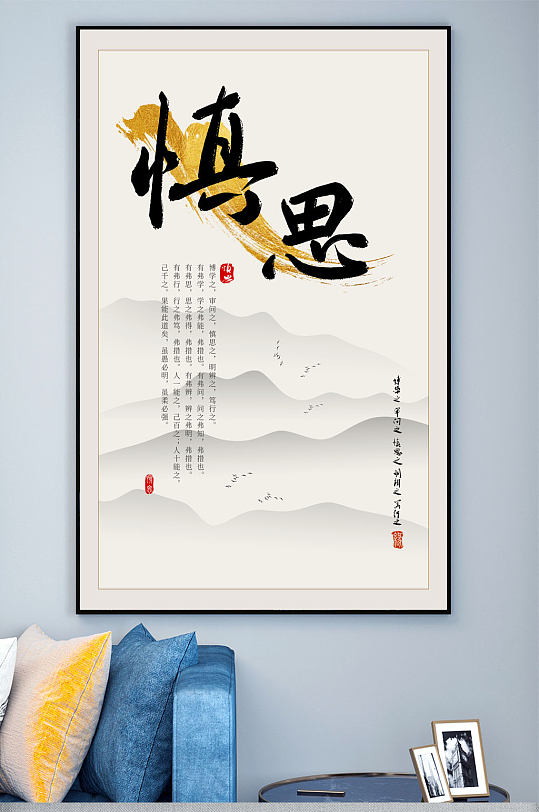 慎思
博学之，审问之，慎思之，明辨之，笃行之。
有弗学，学之弗能，弗措也。有弗问，问之弗知，弗措也。
有弗思，思之弗得，弗措也。有弗辨，辨之弗明，弗措也。
有弗行，行之弗笃，弗措也。人一能之，己百之；人十能之，
己千之。果能此道矣，虽愚必明，虽柔必强。
博学之 审问之 慎思之 明辨之 笃行之